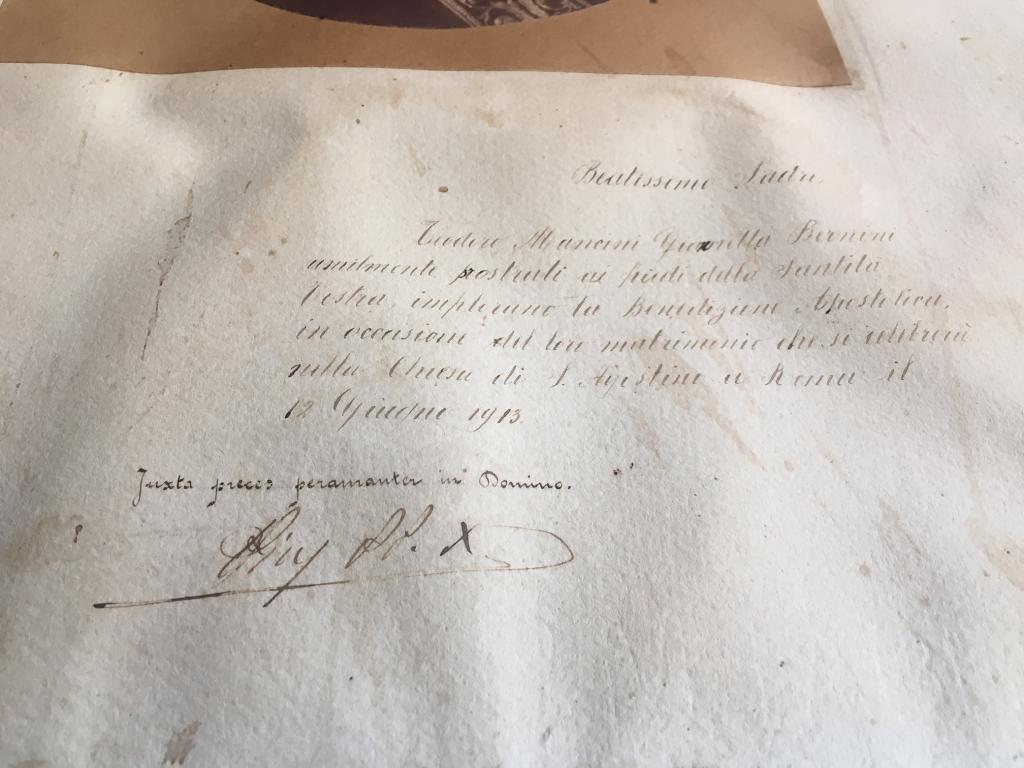 Beatissimo Padre,
Teodoro Mancini Bernini
umilmente prostrati ai piedi della Santità
Vostra, implorano la Benedizione Apostolica,
in occasione del loro matrimonio che si celebrerà
nella Chiesa di S. Agostino a Roma il
12 Giugno 1913.
Juxta preces peramanter in Domino.
Pius PP. X